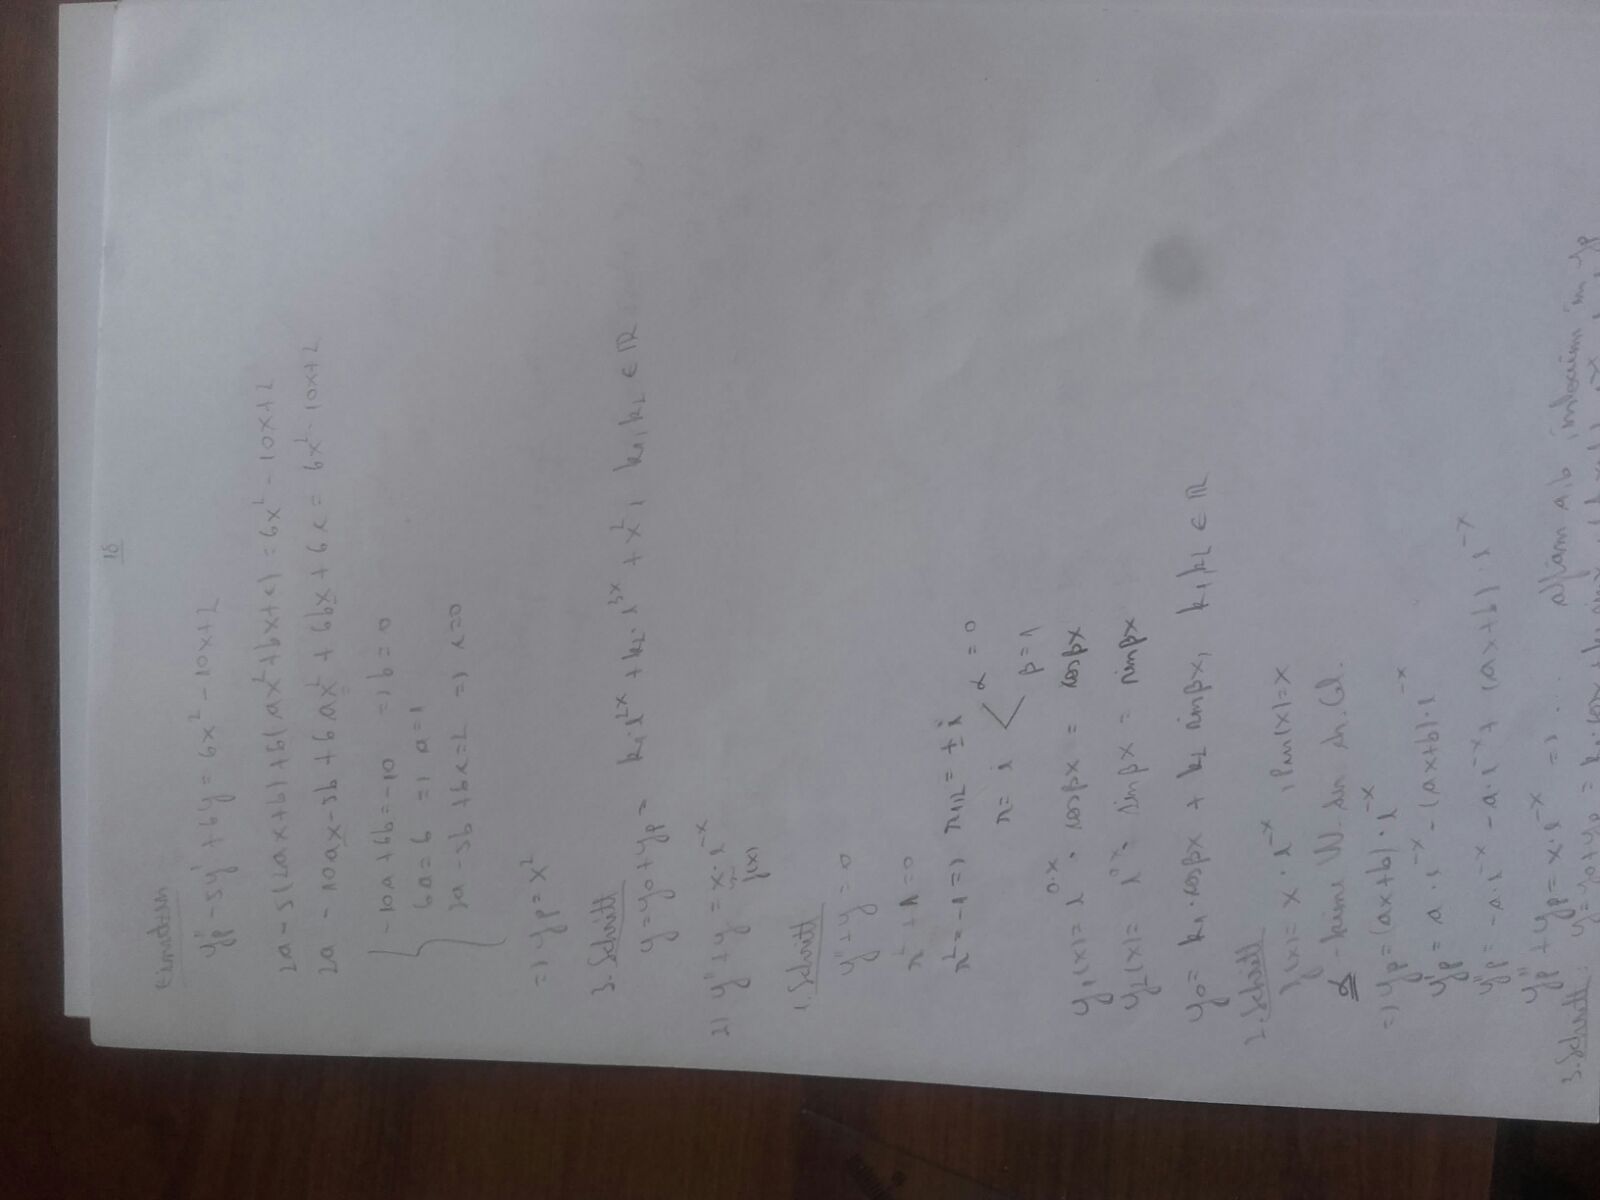 18
Einsetzen
yp'' - 5y' + 6y = 6x² - 10x + 2
2a - 5(2ax+b) + 6(ax²+bx+c) = 6x² - 10x + 2
2a - 10ax - 5b + 6ax² + 6bx + 6c = 6x² - 10x + 2
-10a + 6b = -10 => b = 0
6a = 6 => a = 1
2a - 5b + 6c = 2 => c = 0
=> yp = x²
3. Schritt
y = y0 + yp = k1·e^2x + k2·e^3x + x², k1, k2 ∈ ℝ
2) y'' + y = x·e^-x
f(x)
1. Schritt
y'' + y = 0
r² + 1 = 0
r² = -1 => r1,2 = ± i
α = 0
r = i <
β = 1
y1(x) = e^0·x · cosβx = cosβx
y2(x) = e^0x · sinβx = sinβx
y0 = k1·cosβx + k2 sinβx, k1, k2 ∈ ℝ
2. Schritt
f(x) = x · e^-x , Pm(x) = x
α - keine W. der ch. Gl.
=> yp = (ax+b) · e^-x
yp' = a · e^-x - (ax+b) · e^-x
yp'' = -a·e^-x - a·e^-x + (ax+b) · e^-x
yp'' + yp = x·e^-x => ... aflăm a, b, înlocuim în yp
3. Schritt: y = y0 + yp =